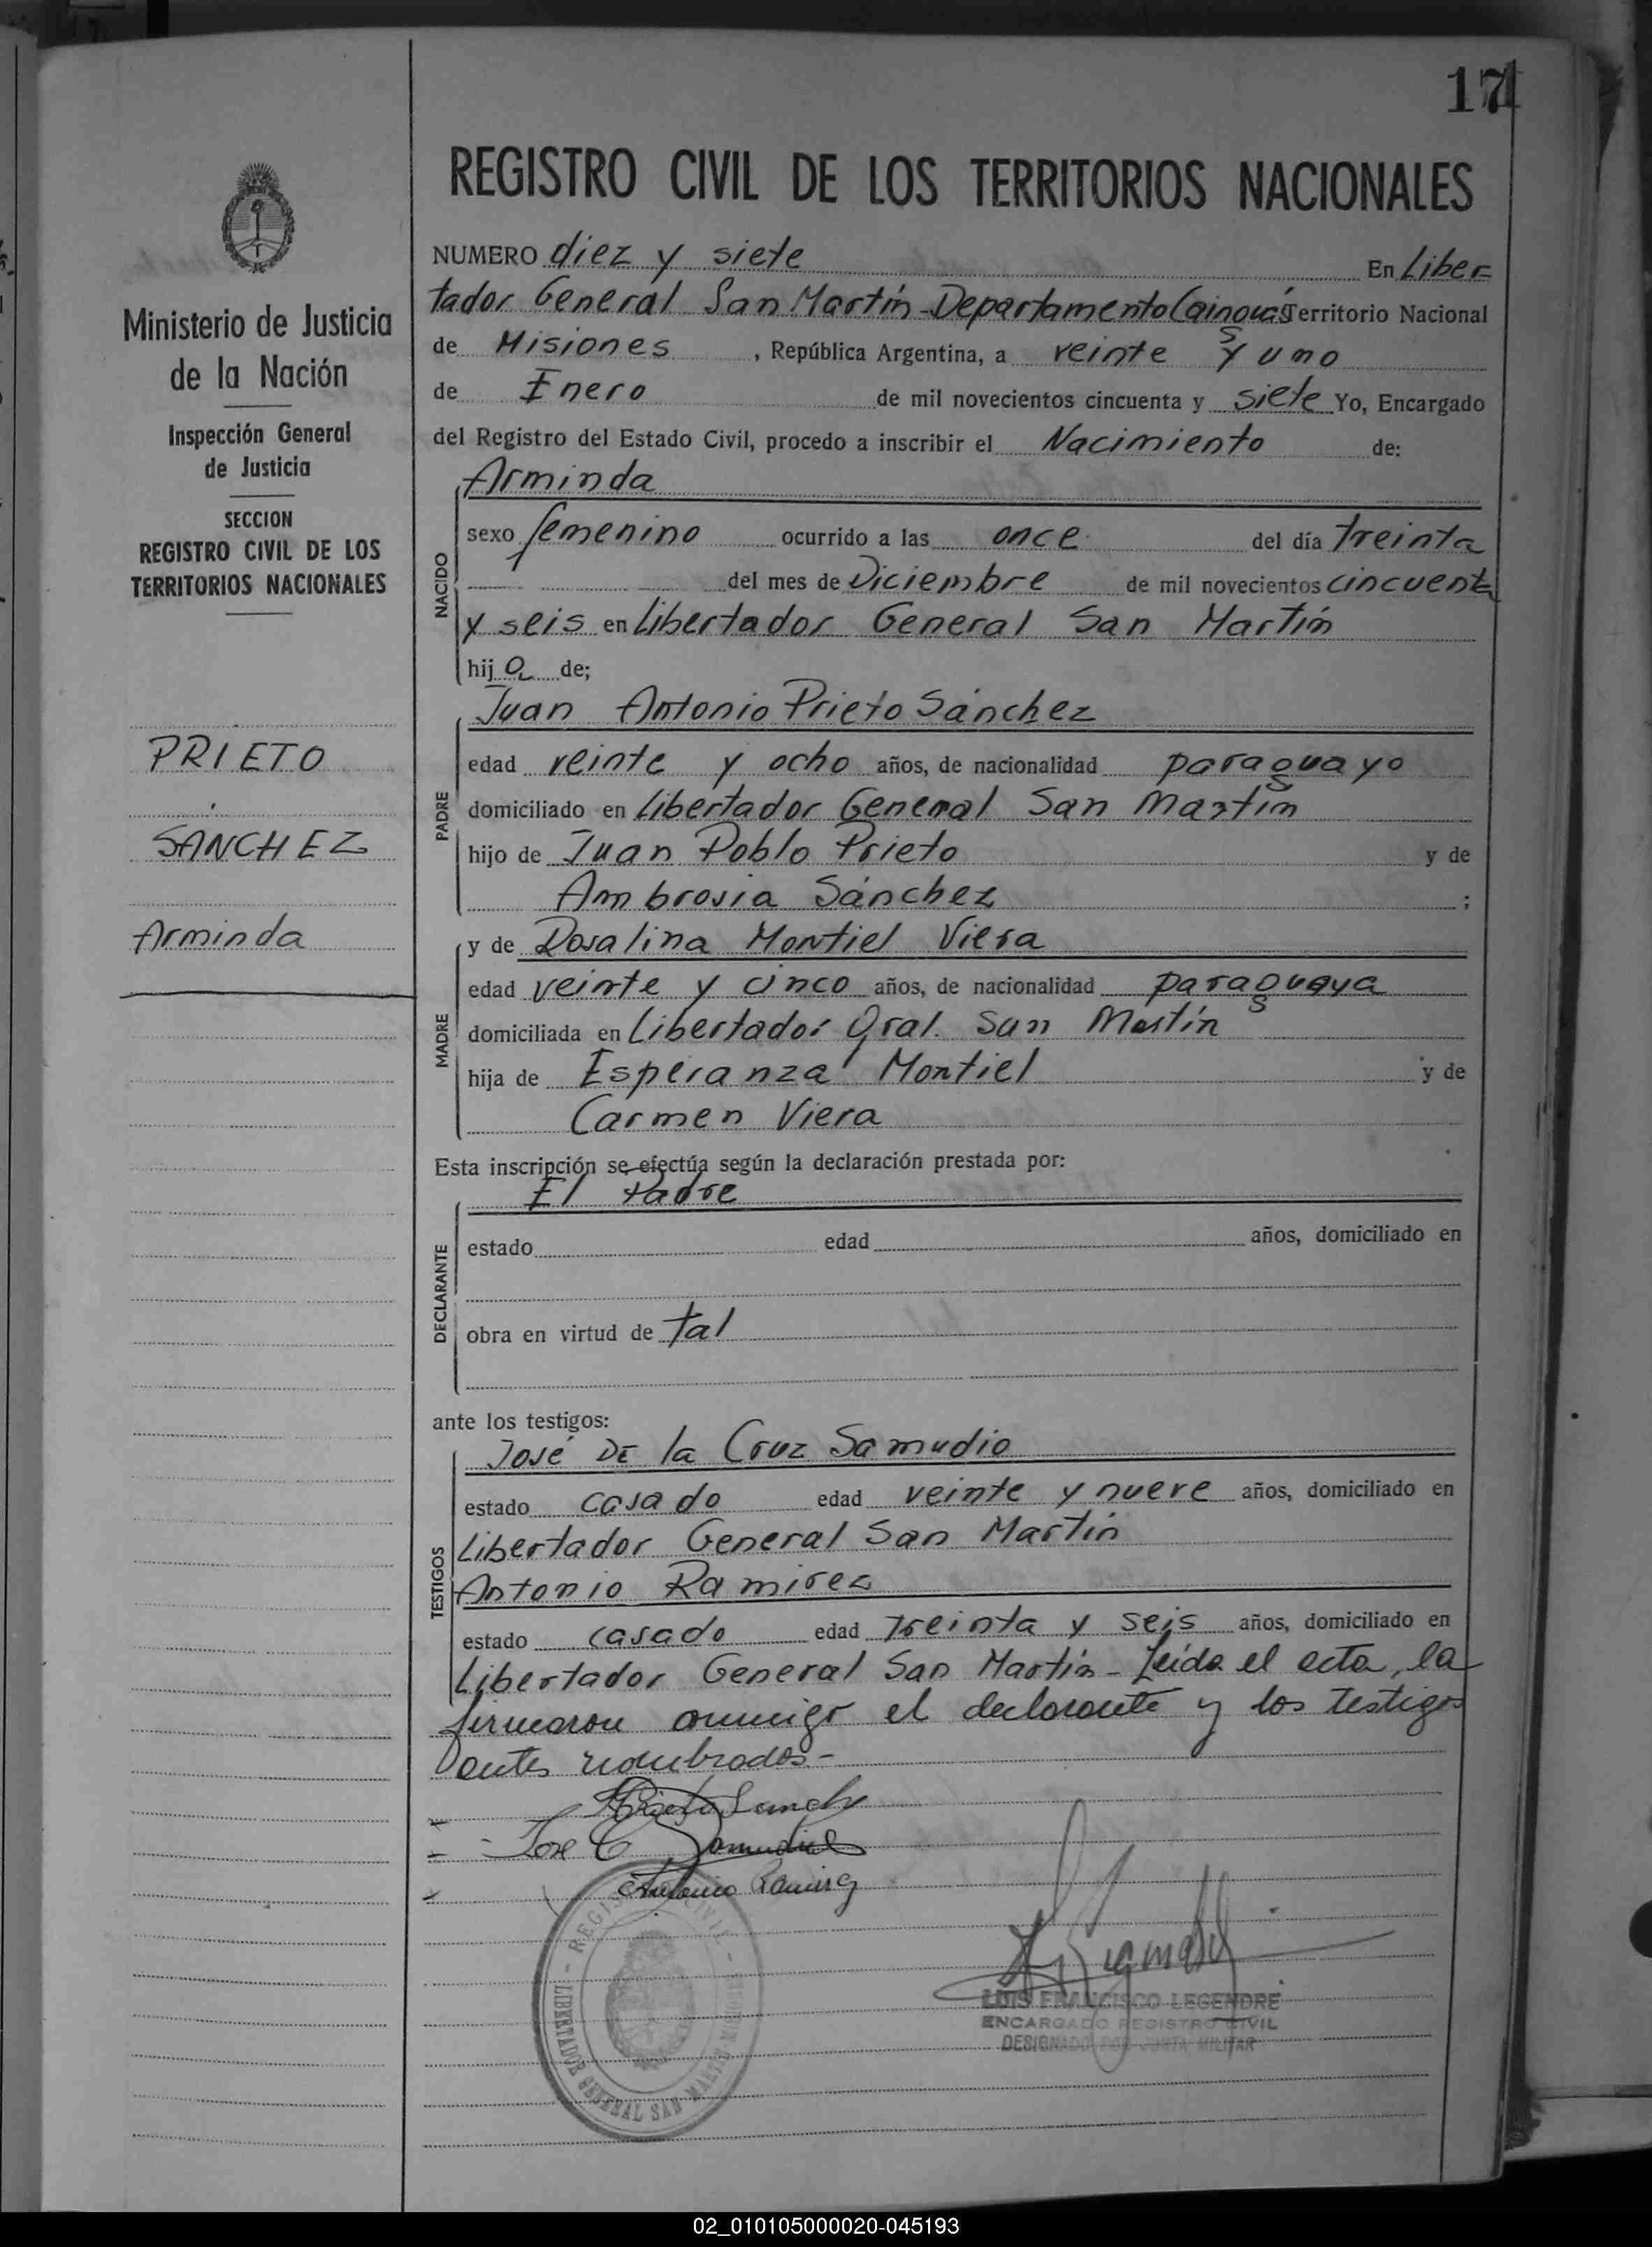 17
REGISTRO CIVIL DE LOS TERRITORIOS NACIONALES
NUMERO diez y siete En Liber=
tador General San Martín - Departamento Cainguás Territorio Nacional
de Misiones , República Argentina, a veinte y uno
de Enero de mil novecientos cincuenta y siete Yo, Encargado
del Registro del Estado Civil, procedo a inscribir el Nacimiento de:
Arminda
NACIDO
sexo femenino ocurrido a las once del día treinta
del mes de Diciembre de mil novecientos cincuenta
y seis en Libertador General San Martín
hija de;
Juan Antonio Prieto Sánchez
PADRE
edad veinte y ocho años, de nacionalidad paraguayo
domiciliado en Libertador General San Martín
hijo de Juan Pablo Prieto y de
Ambrosia Sánchez ;
y de Rosalina Montiel Viera
MADRE
edad veinte y cinco años, de nacionalidad paraguaya
domiciliada en Libertador Gral. San Martín
hija de Esperanza Montiel y de
Carmen Viera
Esta inscripción se efectúa según la declaración prestada por:
El Padre
DECLARANTE
estado edad años, domiciliado en
obra en virtud de tal
ante los testigos:
José DE la Cruz Samudio
TESTIGOS
estado casado edad veinte y nueve años, domiciliado en
Libertador General San Martín
Antonio Ramirez
estado casado edad treinta y seis años, domiciliado en
Libertador General San Martín - Leída el acta, la
firmaron conmigo el declarante y los testigos
antes nombrados -
José C Samudio
Antonio Ramirez
REGISTRO CIVIL
LIBERTADOR GENERAL SAN MARTIN
LUIS FRANCISCO LEGENDRE
ENCARGADO REGISTRO CIVIL
DESIGNADO POR JUNTA MILITAR
Ministerio de Justicia
de la Nación
Inspección General
de Justicia
SECCION
REGISTRO CIVIL DE LOS
TERRITORIOS NACIONALES
PRIETO
SANCHEZ
Arminda
02_010105000020-045193